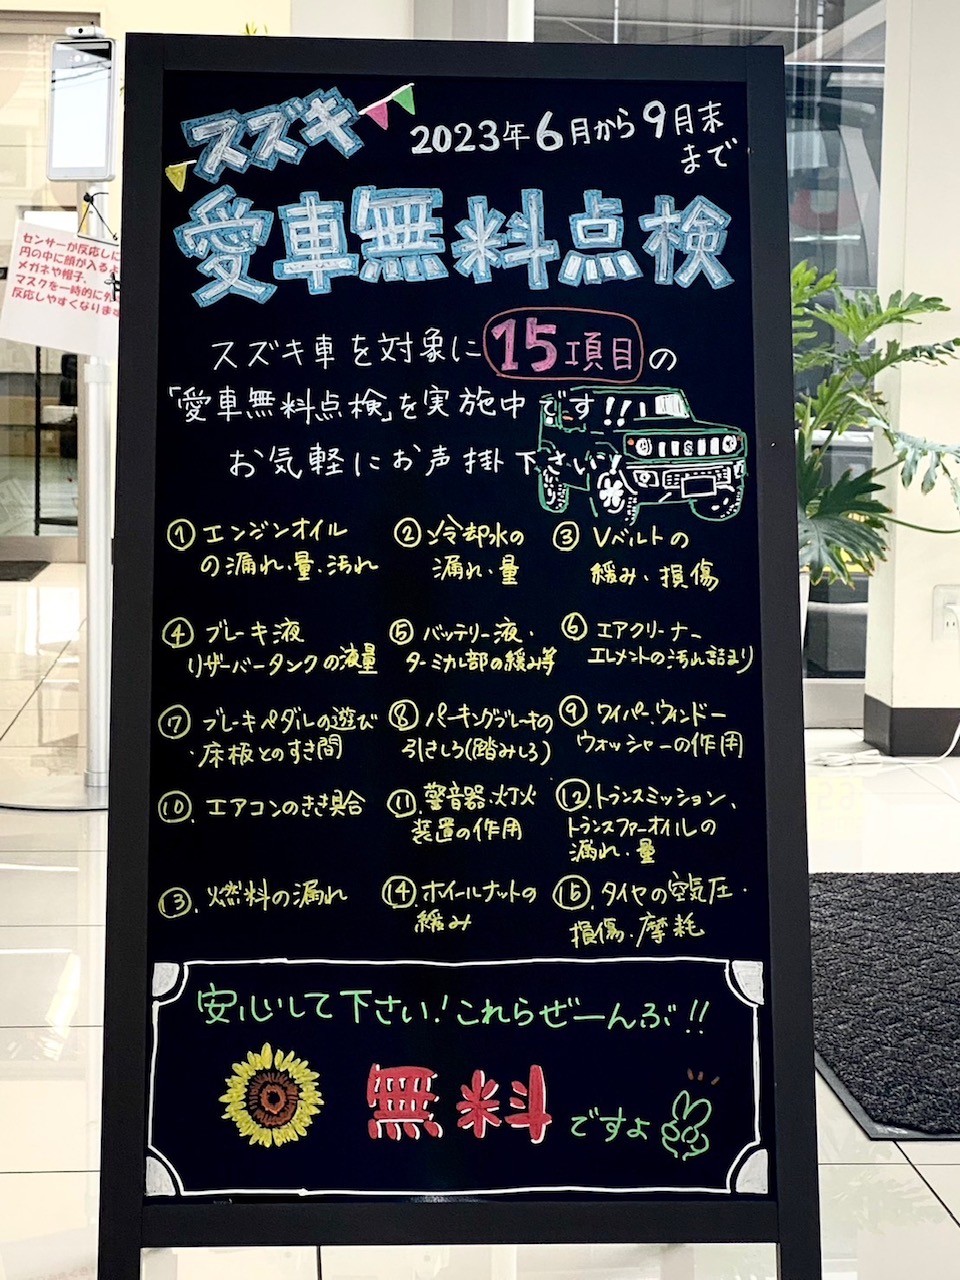 スズキ
2023年6月から9月末
まで
愛車無料点検
スズキ車を対象に15項目の
「愛車無料点検」を実施中です!!
お気軽にお声掛下さい!
① エンジンオイル
の漏れ・量・汚れ
② 冷却水の
漏れ・量
③ Vベルトの
緩み・損傷
④ ブレーキ液
リザーバータンクの液量
⑤ バッテリー液・
ターミナル部の緩み等
⑥ エアクリーナー
エレメントの汚れ詰まり
⑦ ブレーキペダルの遊び
・床板とのすき間
⑧ パーキングブレーキの
引きしろ(踏みしろ)
⑨ ワイパー、ウィンドー
ウォッシャーの作用
⑩. エアコンのきき具合
⑪. 警音器・灯火
装置の作用
⑫. トランスミッション、
トランスファーオイルの
漏れ・量
⑬. 燃料の漏れ
⑭. ホイールナットの
緩み
⑮. タイヤの空気圧・
損傷・摩耗
安心して下さい!これらぜーんぶ!!
無料ですよ
センサーが反応しに
円の中に顔が入るよ
メガネや帽子、
マスクを一時的に外
反応しやすくなります